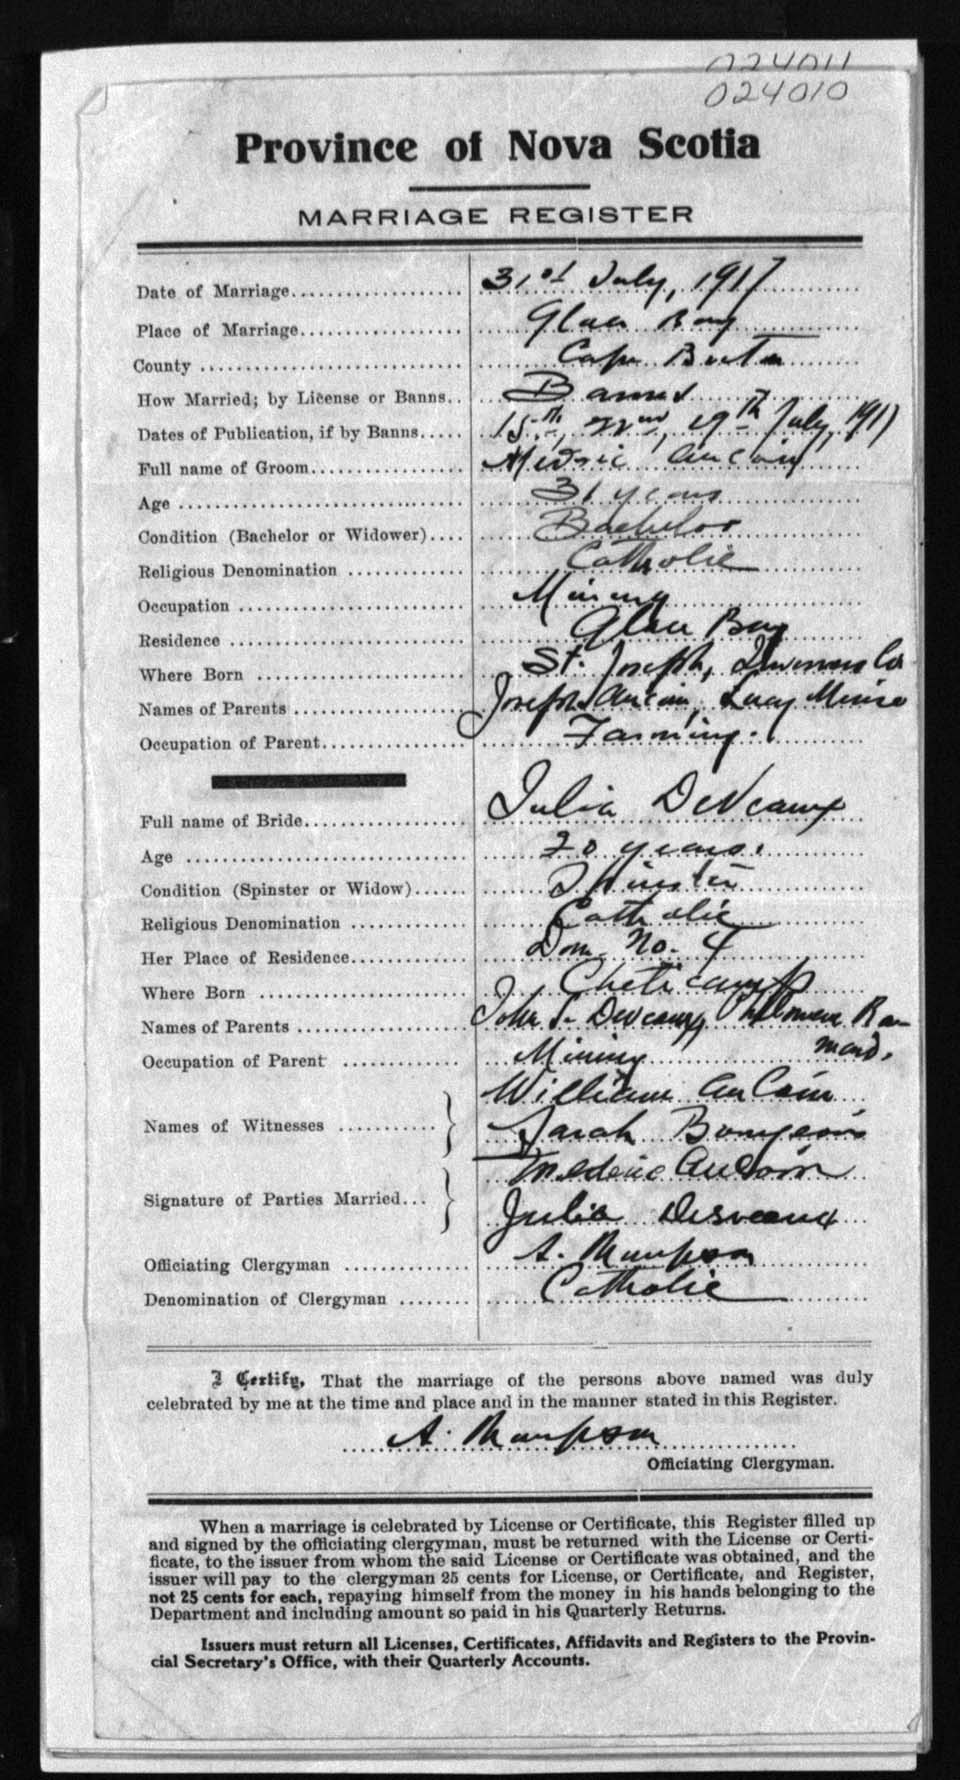 024011
024010
Province of Nova Scotia
MARRIAGE REGISTER
Date of Marriage 31st July, 1917
Place of Marriage Glace Bay
County Cape Breton
How Married; by License or Banns Banns
Dates of Publication, if by Banns 15th, 22nd, 29th July, 1917
Full name of Groom Medric Aucoin
Age 31 years
Condition (Bachelor or Widower) Bachelor
Religious Denomination Catholic
Occupation Mining
Residence Glace Bay
Where Born St. Joseph, Inverness Co
Names of Parents Joseph Aucoin, Lucy
Occupation of Parent Farming.
Full name of Bride Julia DeVeaux
Age 20 years.
Condition (Spinster or Widow) Spinster
Religious Denomination Catholic
Her Place of Residence Dom No. 4
Where Born Cheticamp
Names of Parents John J. Deveaux, Philomene
Occupation of Parent Mining
Names of Witnesses William AuCoin
Sarah Bourgeois
Signature of Parties Married Mederic AuCoin
Julia Desveaux
Officiating Clergyman A. Thompson
Denomination of Clergyman Catholic
I Certify, That the marriage of the persons above named was duly
celebrated by me at the time and place and in the manner stated in this Register.
A. Thompson
Officiating Clergyman.
When a marriage is celebrated by License or Certificate, this Register filled up
and signed by the officiating clergyman, must be returned with the License or Certi-
ficate, to the issuer from whom the said License or Certificate was obtained, and the
issuer will pay to the clergyman 25 cents for License, or Certificate, and Register,
not 25 cents for each, repaying himself from the money in his hands belonging to the
Department and including amount so paid in his Quarterly Returns.
Issuers must return all Licenses, Certificates, Affidavits and Registers to the Provin-
cial Secretary's Office, with their Quarterly Accounts.